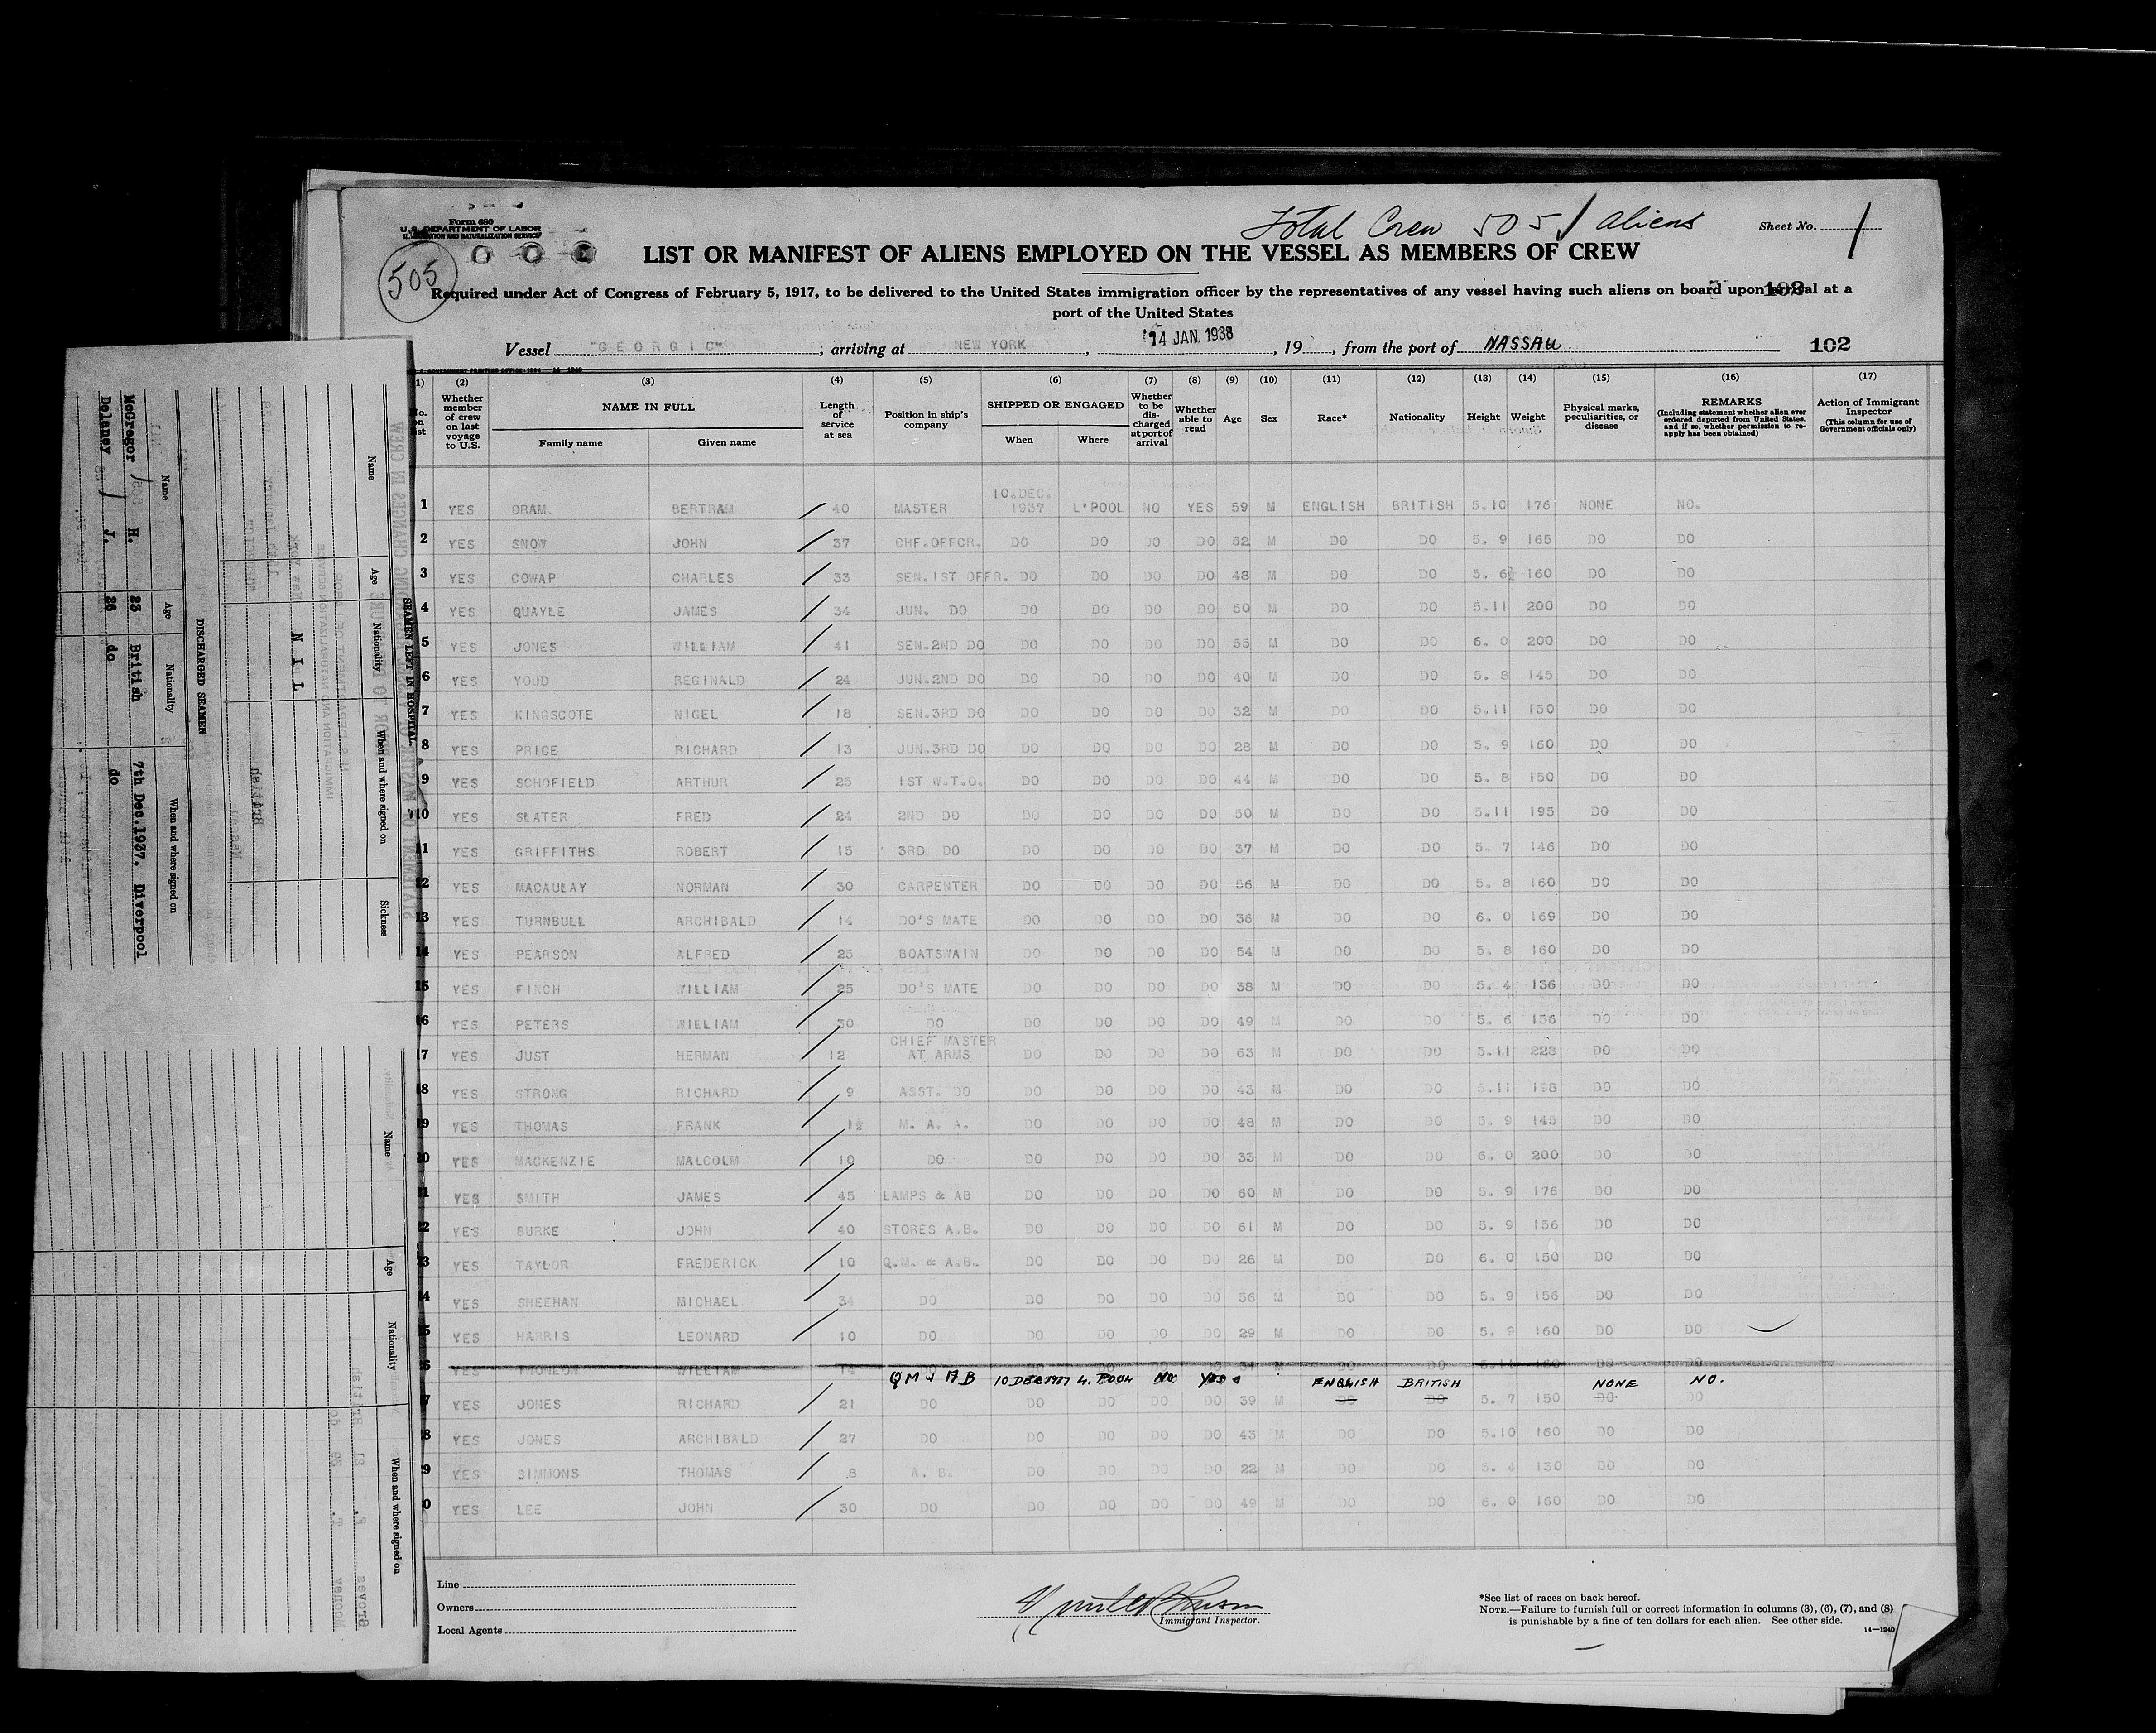 Form 680
U.S. DEPARTMENT OF LABOR
NATURALIZATION SERVICE
Total Crew 505 / aliens
Sheet No. 1
505
LIST OR MANIFEST OF ALIENS EMPLOYED ON THE VESSEL AS MEMBERS OF CREW
Required under Act of Congress of February 5, 1917, to be delivered to the United States immigration officer by the representatives of any vessel having such aliens on board upon arrival at a
port of the United States
Vessel "GEORGIC", arriving at NEW YORK, 14 JAN. 1938, 19 , from the port of NASSAU 102
(1) (2) (3) (4) (5) (6) (7) (8) (9) (10) (11) (12) (13) (14) (15) (16) (17)
No. on list
Whether member of crew on last voyage to U.S.
NAME IN FULL
Family name Given name
Length of service at sea
Position in ship's company
SHIPPED OR ENGAGED
When Where
Whether to be discharged at port of arrival
Whether able to read
Age
Sex
Race*
Nationality
Height
Weight
Physical marks, peculiarities, or disease
REMARKS
(Including statement whether alien ever ordered deported from United States, and if so, whether permission to reapply has been obtained)
Action of Immigrant Inspector
(This column for use of Government officials only)
1 YES DRAM. BERTRAM 40 MASTER 10.DEC. 1937 L'POOL NO YES 59 M ENGLISH BRITISH 5.10 176 NONE NO.
2 YES SNOW JOHN 37 CHF.OFFCR. DO DO DO DO 52 M DO DO 5. 9 165 DO DO
3 YES COWAP CHARLES 33 SEN.1ST OFFR. DO DO DO DO 48 M DO DO 5. 6½ 160 DO DO
4 YES QUAYLE JAMES 34 JUN. DO DO DO DO DO 50 M DO DO 5.11 200 DO DO
5 YES JONES WILLIAM 41 SEN.2ND DO DO DO DO DO 55 M DO DO 6. 0 200 DO DO
6 YES YOUD REGINALD 24 JUN.2ND DO DO DO DO DO 40 M DO DO 5. 8 145 DO DO
7 YES KINGSCOTE NIGEL 18 SEN.3RD DO DO DO DO DO 32 M DO DO 5.11 150 DO DO
8 YES PRICE RICHARD 13 JUN.3RD DO DO DO DO DO 28 M DO DO 5. 9 160 DO DO
9 YES SCHOFIELD ARTHUR 25 1ST W.T.O. DO DO DO DO 44 M DO DO 5. 8 150 DO DO
10 YES SLATER FRED 24 2ND DO DO DO DO DO 50 M DO DO 5.11 195 DO DO
11 YES GRIFFITHS ROBERT 15 3RD DO DO DO DO DO 37 M DO DO 5. 7 146 DO DO
12 YES MACAULAY NORMAN 30 CARPENTER DO DO DO DO 56 M DO DO 5. 8 160 DO DO
13 YES TURNBULL ARCHIBALD 14 DO'S MATE DO DO DO DO 36 M DO DO 6. 0 169 DO DO
14 YES PEARSON ALFRED 25 BOATSWAIN DO DO DO DO 54 M DO DO 5. 8 160 DO DO
15 YES FINCH WILLIAM 25 DO'S MATE DO DO DO DO 38 M DO DO 5. 4 136 DO DO
16 YES PETERS WILLIAM 30 DO DO DO DO DO 49 M DO DO 5. 6 156 DO DO
17 YES JUST HERMAN 12 CHIEF MASTER AT ARMS DO DO DO DO 63 M DO DO 5.11 228 DO DO
18 YES STRONG RICHARD 9 ASST. DO DO DO DO DO 43 M DO DO 5.11 198 DO DO
19 YES THOMAS FRANK 1½ M. A. A. DO DO DO DO 48 M DO DO 5. 9 145 DO DO
20 YES MACKENZIE MALCOLM 10 DO DO DO DO DO 33 M DO DO 6. 0 200 DO DO
21 YES SMITH JAMES 45 LAMPS & AB DO DO DO DO 60 M DO DO 5. 9 176 DO DO
22 YES BURKE JOHN 40 STORES A.B. DO DO DO DO 61 M DO DO 5. 9 156 DO DO
23 YES TAYLOR FREDERICK 10 Q.M. & A.B. DO DO DO DO 26 M DO DO 6. 0 150 DO DO
24 YES SHEEHAN MICHAEL 34 DO DO DO DO DO 56 M DO DO 5. 9 156 DO DO
25 YES HARRIS LEONARD 10 DO DO DO DO DO 29 M DO DO 5. 9 160 DO DO
26 YES WILLIAM 14 DO DO DO DO DO M DO DO DO DO
QM & AB 10 DEC 1937 L. POOL NO YES ENGLISH BRITISH NONE NO.
27 YES JONES RICHARD 21 DO DO DO DO DO 39 M DO DO 5. 7 150 DO DO
28 YES JONES ARCHIBALD 27 DO DO DO DO DO 43 M DO DO 5.10 160 DO DO
29 YES SIMMONS THOMAS 8 A. B. DO DO DO DO 22 M DO DO 5. 4 130 DO DO
30 YES LEE JOHN 30 DO DO DO DO DO 49 M DO DO 6. 0 160 DO DO
Line
Owners
Local Agents
Immigrant Inspector.
*See list of races on back hereof.
NOTE.—Failure to furnish full or correct information in columns (3), (6), (7), and (8)
is punishable by a fine of ten dollars for each alien. See other side.
14—1240
SEAMEN LEFT IN HOSPITAL
Name Age Nationality When and where signed on Sickness
N I L
DISCHARGED SEAMEN
Name Age Nationality When and where signed on
McGregor H. 23 British 7th Dec.1937. Liverpool
Delaney J. 26 do do
Name Age Nationality When and where signed on